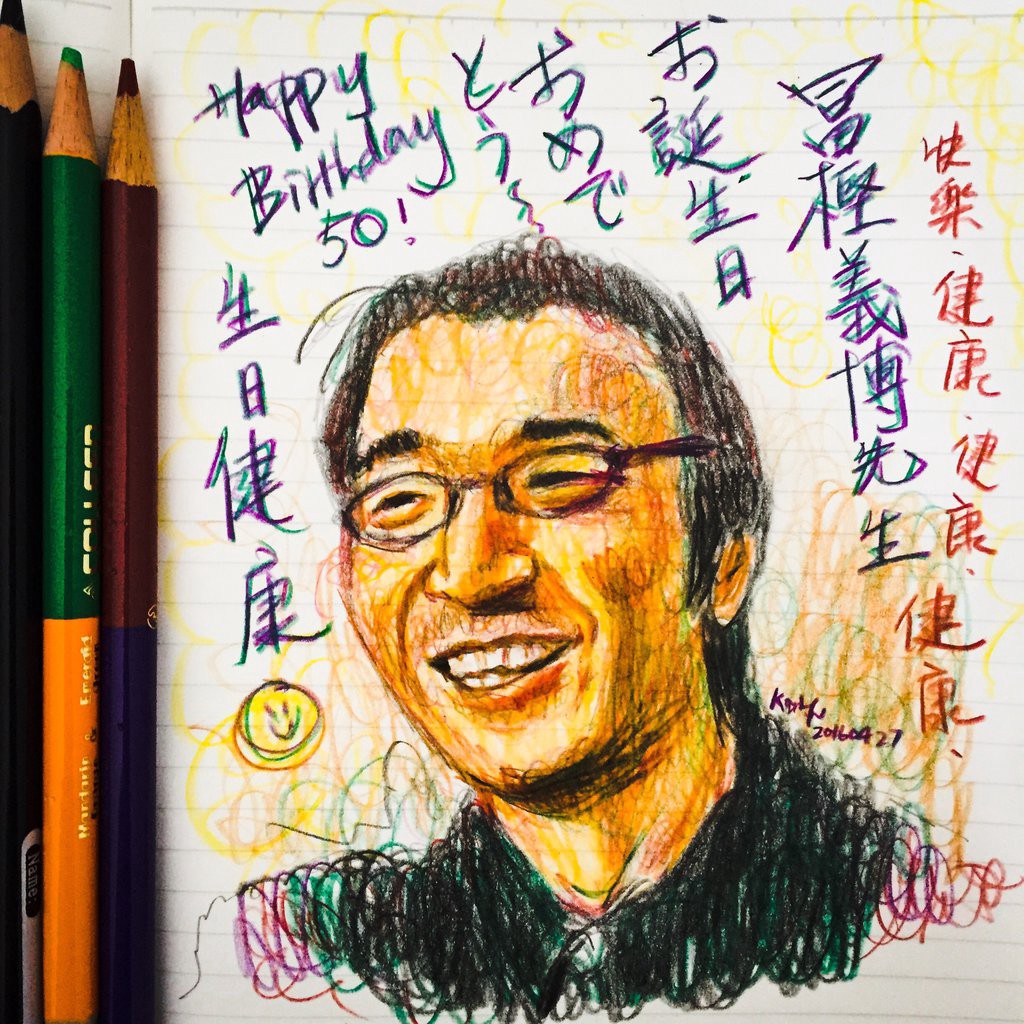 快樂、健康、健康、健康、
冨樫義博先生
お誕生日
おめで
とう~
Happy
Birthday
50!
生日健康
2016 04 27
Name: